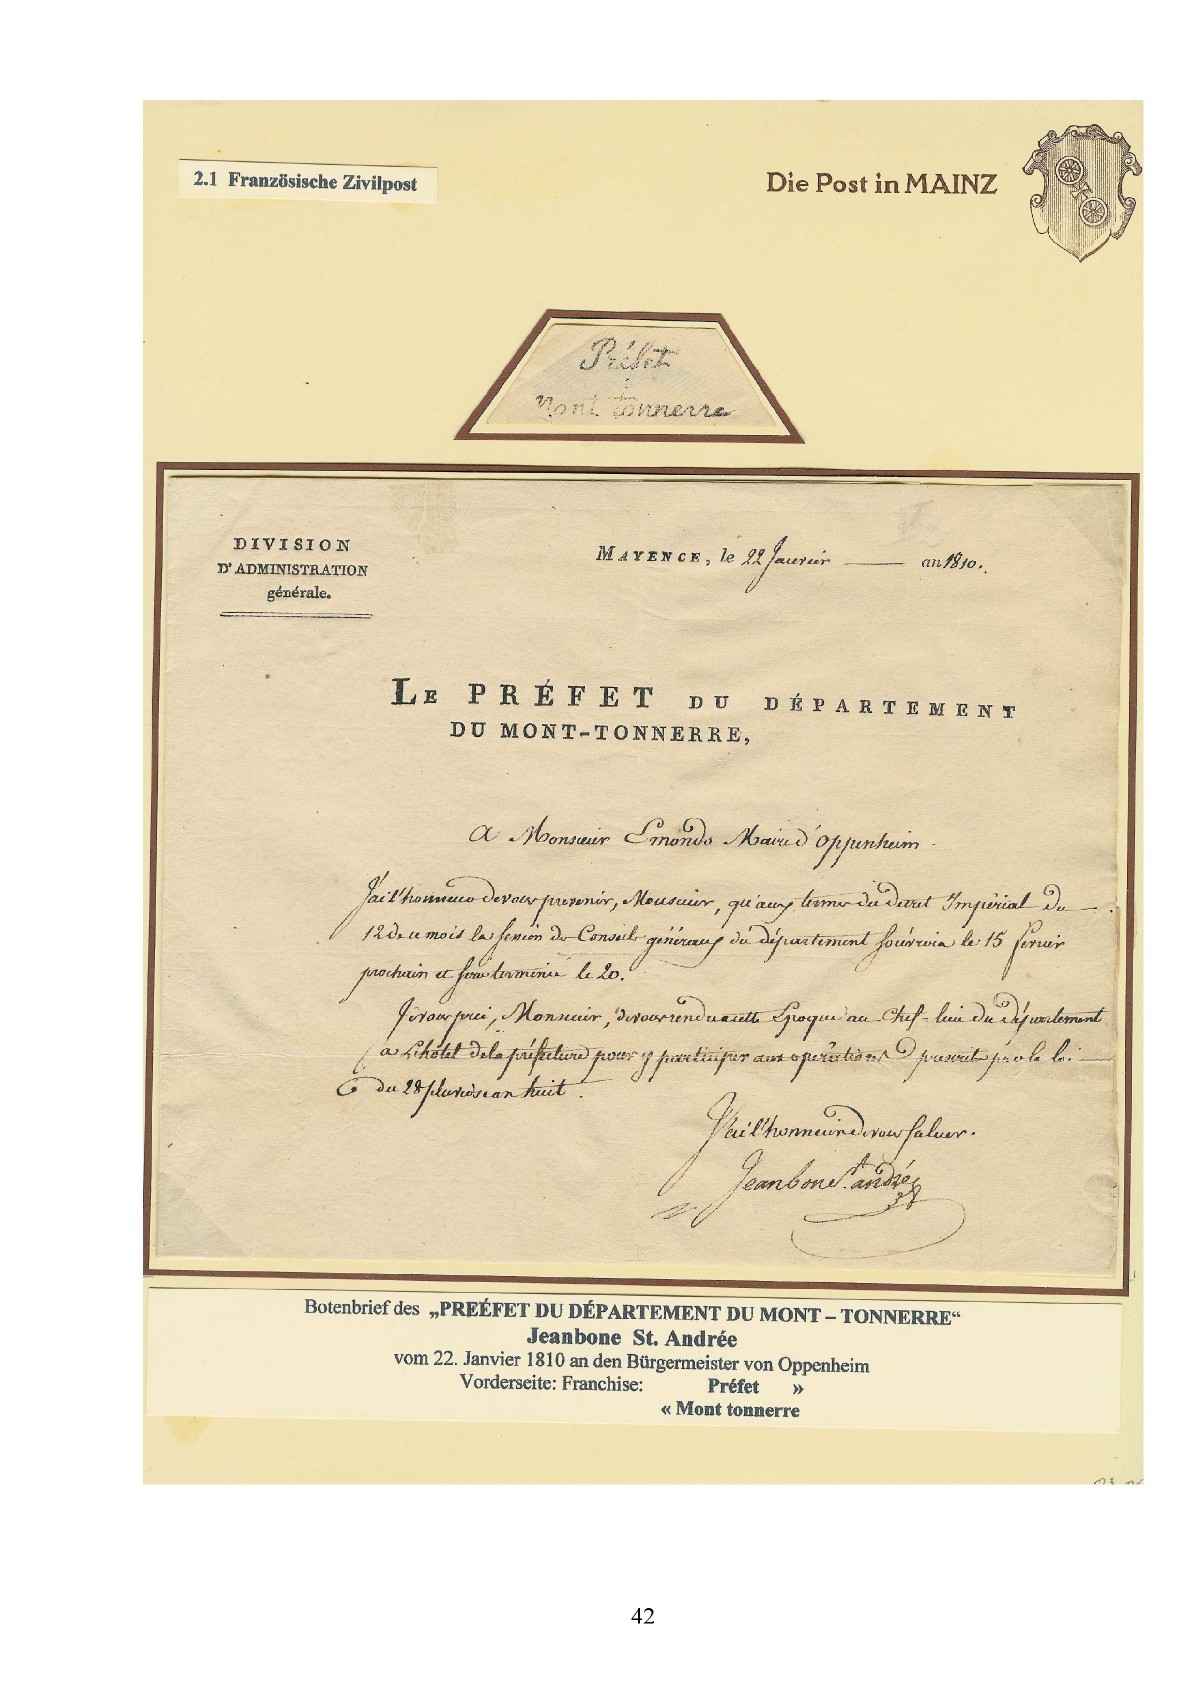 2.1 Französische Zivilpost
Die Post in MAINZ
Préfet
Mont tonnerre
DIVISION
D'ADMINISTRATION
générale.
MAYENCE, le 22 Janvier an 1810.
LE PRÉFET DU DÉPARTEMENT
DU MONT-TONNERRE,
A Monsieur Emonds Maire d'Oppenheim.
J'ai l'honneur de vous prevenir, Monsieur, qu'aux termes du decret Impérial du
12 de ce mois la session des Conseils généraux du département s'ouvrira le 15 fevrier
prochain et sera terminée le 20.
Je vous prie, Monsieur, de vous rendre a cette Epoque au Chef-lieu du département
a L'hôtel de la préfecture pour y participer aux opérations prescrites par la loi
du 28 pluviose an huit.
J'ai l'honneur de vous saluer.
Jeanbon St. andré
Botenbrief des „PREÉFET DU DÉPARTEMENT DU MONT – TONNERRE“
Jeanbone St. Andrée
vom 22. Janvier 1810 an den Bürgermeister von Oppenheim
Vorderseite: Franchise: Préfet »
« Mont tonnerre
42